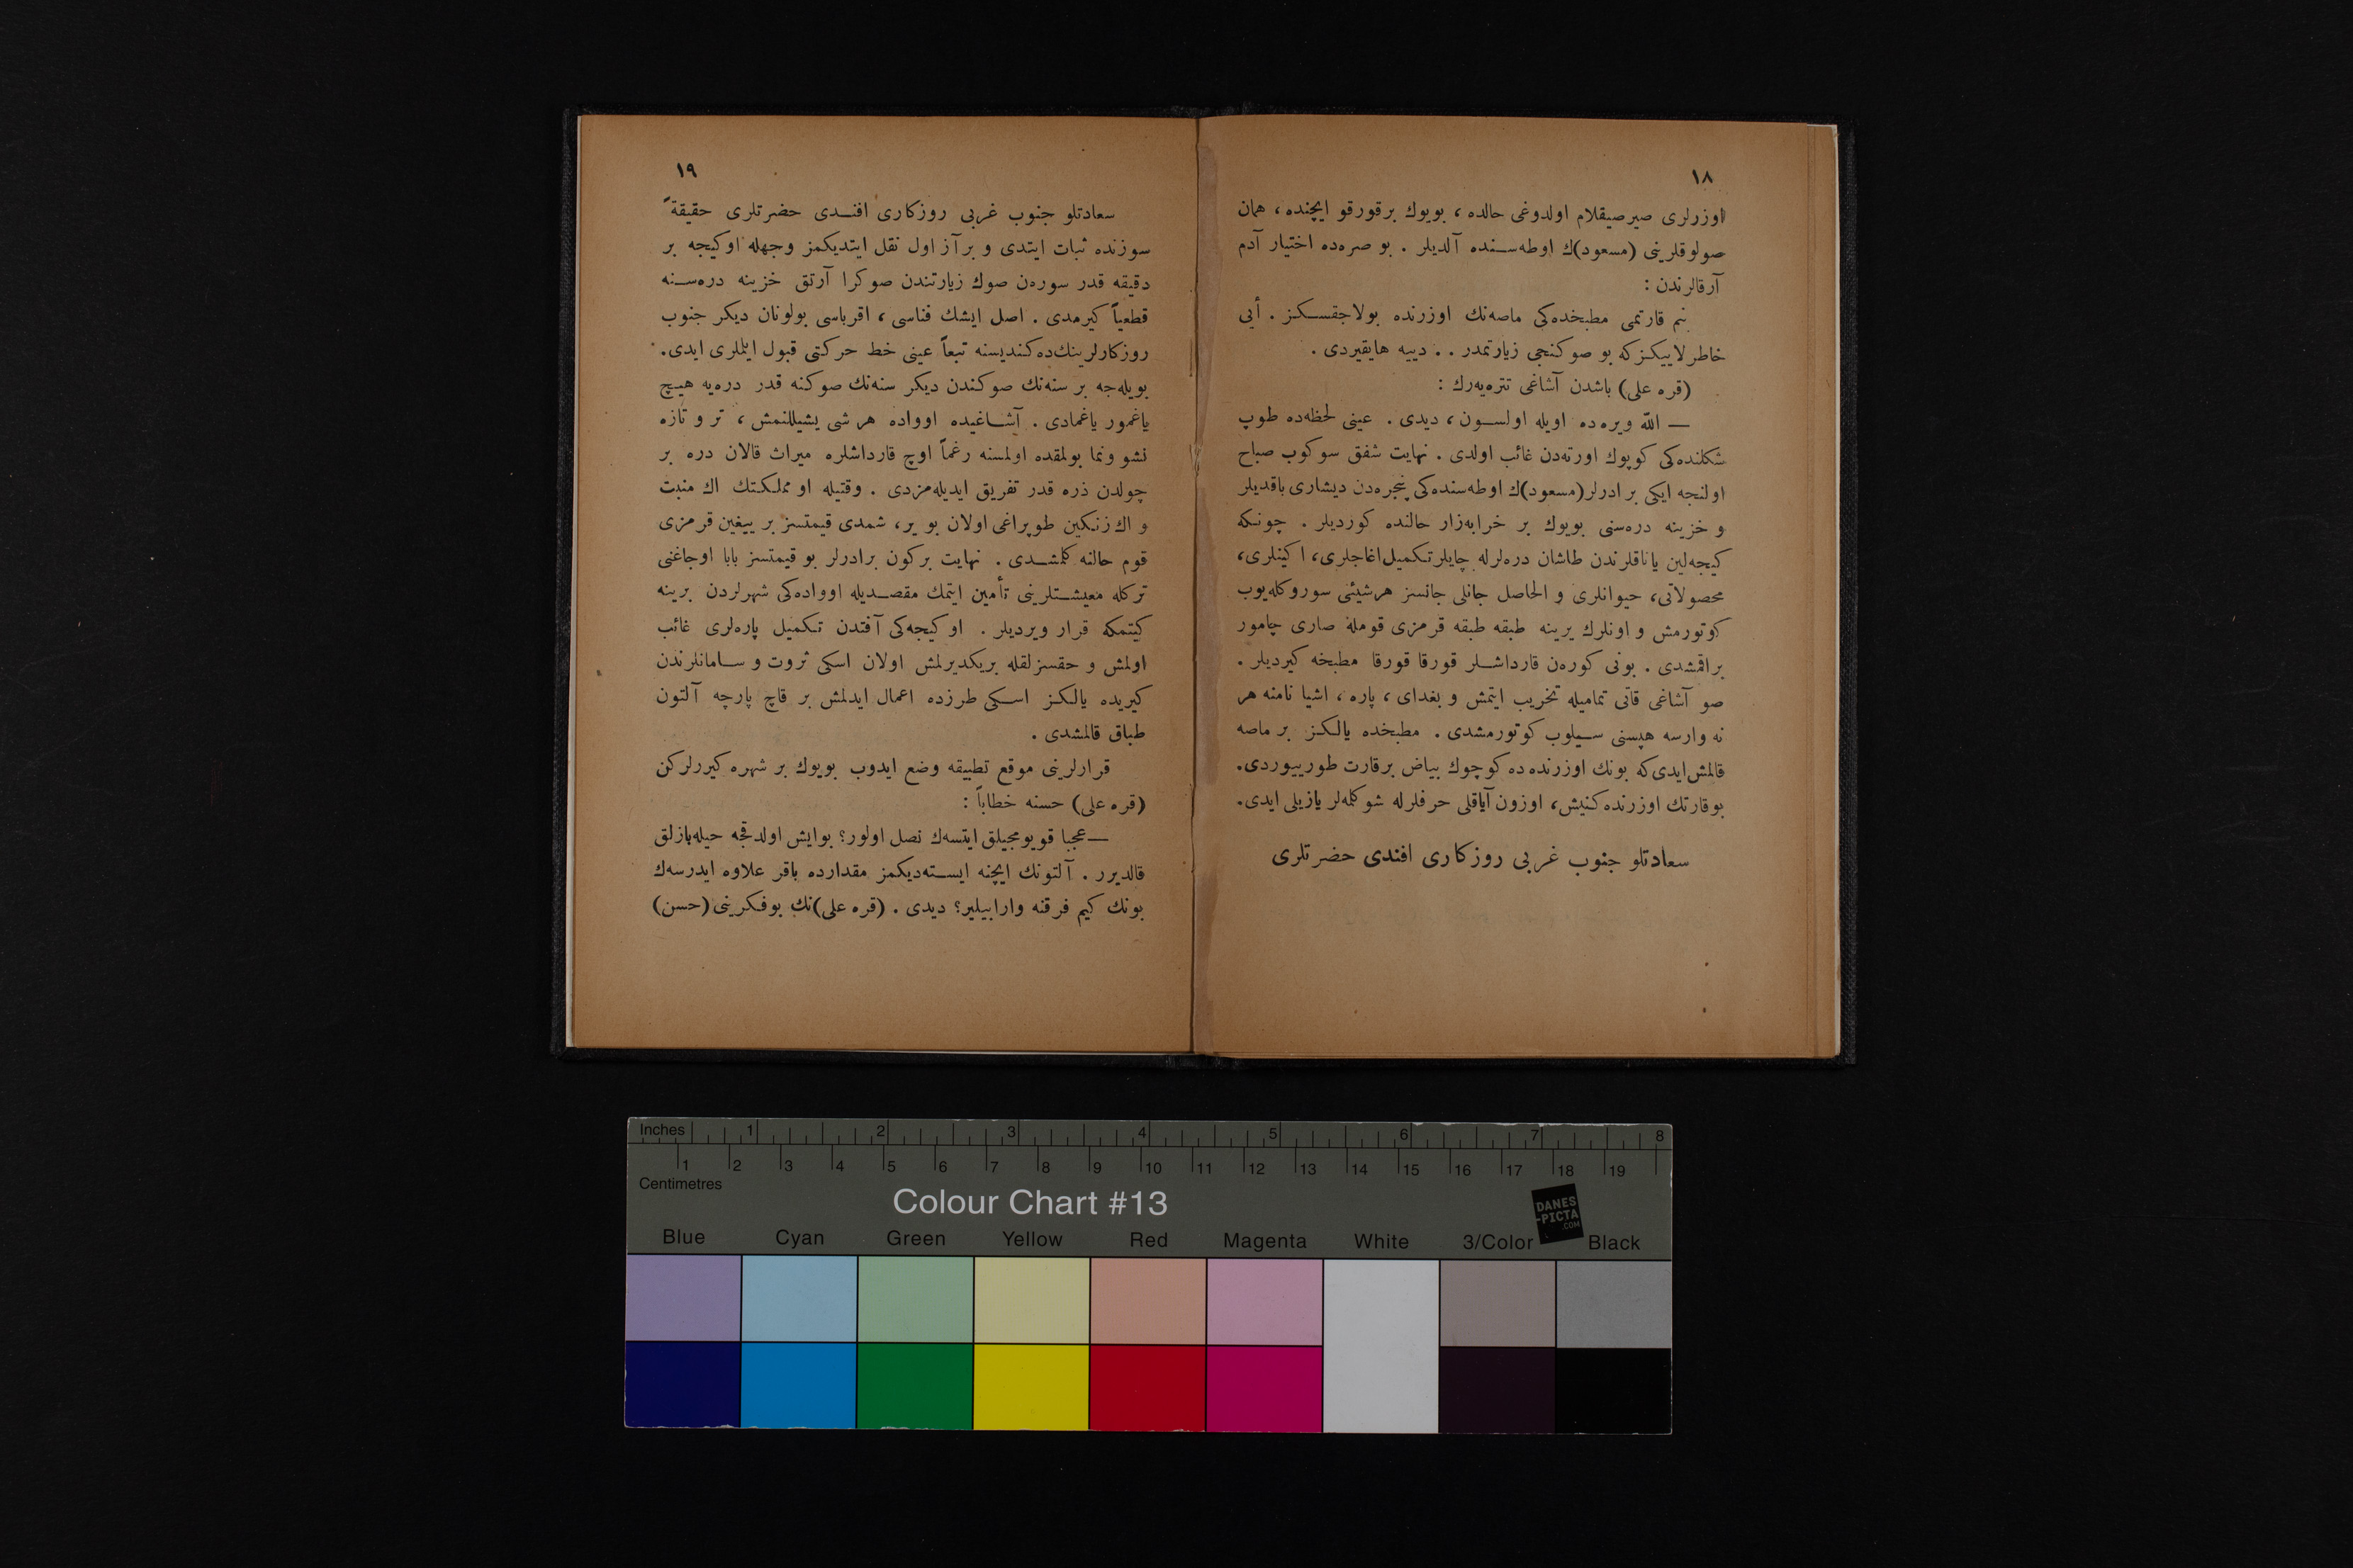 ١٨
اوزرلری صیرصیقلام اولدوغی حالده، بویوك برقورقو ایچنده، همان
صولوقلرینی (مسعود)ك اوطه‌سنده آلدیلر . بو صره‌ده اختیار آدم
آرقالرندن :
بنم قارتمی مطبخده‌کی ماصه‌نك اوزرنده بولاجقسکز . أیی
خاطرلاییکزکه بو صوکنجی زیارتمدر . . دییه هایقیردی .
(قره علی) باشدن آشاغی تتره‌یه‌رك :
— الله ویره‌ده اویله اولسون، دیدی . عینی لحظه‌ده طوپ
شکلنده‌کی کوپوك اورته‌دن غائب اولدی . نهایت شفق سوکوب صباح
اولنجه ایکی برادرلر (مسعود)ك اوطه‌سنده‌کی پنجره‌دن دیشاری باقدیلر
و خزینه دره‌سنی بویوك بر خرابه‌زار حالنده کوردیلر . چونکه
کیجه‌لین یاناقلرندن طاشان دره‌لرله چایلر تکمیل اغاجلری، اکینلری،
محصولاتی، حیوانلری و الحاصل جانلی جانسز هرشیئی سوروکله‌یوب
کوتورمش و اونلرك یرینه طبقه طبقه قرمزی قومله صاری چامور
براقمشدی . بونی کوره‌ن قارداشلر قورقا قورقا مطبخه کیردیلر .
صو آشاغی قاتی تمامیله تخریب ایتمش و بغدای، پاره، اشیا نامنه هر
نه وارسه هپسنی سیلوب کوتورمشدی . مطبخده یالکز بر ماصه
قالمش‌ایدی‌که بونك اوزرنده‌ده کوچوك بیاض برقارت طورییوردی.
بوقارتك اوزرنده کنیش، اوزون آیاقلی حرفلرله شوکله‌لر یازیلی ایدی.
سعادتلو جنوب غربی روزکاری افندی حضرتلری
١٩
سعادتلو جنوب غربی روزکاری افندی حضرتلری حقیقةً
سوزنده ثبات ایتدی و برآز اول نقل ایتدیکمز وجهله اوکیجه بر
دقیقه قدر سوره‌ن صوك زیارتندن صوکرا آرتق خزینه دره‌سنه
قطعیاً کیرمدی . اصل ایشك فناسی، اقرباسی بولونان دیکر جنوب
روزکارلرینك‌ده کندیسنه تبعاً عینی خط حرکتی قبول ایتملری ایدی.
بویله‌جه بر سنه‌نك صوکندن دیکر سنه‌نك صوکنه قدر دره‌یه هیچ
یاغمور یاغمادی . آشاغیده اوواده هر شی یشیللنمش، تر و تازه
نشو ونما بولمقده اولمسنه رغماً اوچ قارداشلره میراث قالان دره بر
چولدن ذره قدر تفریق ایدیله‌مزدی . وقتیله او مملکتك اك منبت
و اك زنکین طوپراغی اولان بو یر، شمدی قیمتسز بر ییغین قرمزی
قوم حالنه کلمشدی . نهایت برکون برادرلر بو قیمتسز بابا اوجاغنی
ترکله معیشتلرینی تأمین ایتمك مقصدیله اوواده‌کی شهرلردن برینه
کیتمکه قرار ویردیلر . او کیجه‌کی آفتدن تکمیل پاره‌لری غائب
اولمش و حقسزلقله بریکدیرلمش اولان اسکی ثروت و سامانلرندن
کیریده یالکز اسکی طرزده اعمال ایدلمش بر قاچ پارچه آلتون
طباق قالمشدی .
قرارلرینی موقع تطبیقه وضع ایدوب بویوك بر شهره کیررلرکن
(قره علی) حسنه خطاباً :
— عجبا قویومجیلق ایتسه‌ك نصل اولور؟ بوایش اولدقجه حیله‌بازلق
قالدیرر . آلتونك ایچنه ایسته‌دیکمز مقدارده باقر علاوه ایدرسه‌ك
بونك کیم فرقنه وارابیلیر؟ دیدی . (قره علی)نك بوفکرینی (حسن)
Inches 1 2 3 4 5 6 7 8
1 2 3 4 5 6 7 8 9 10 11 12 13 14 15 16 17 18 19
Centimetres
Colour Chart #13
DANES
-PICTA
.COM
Blue Cyan Green Yellow Red Magenta White 3/Color Black